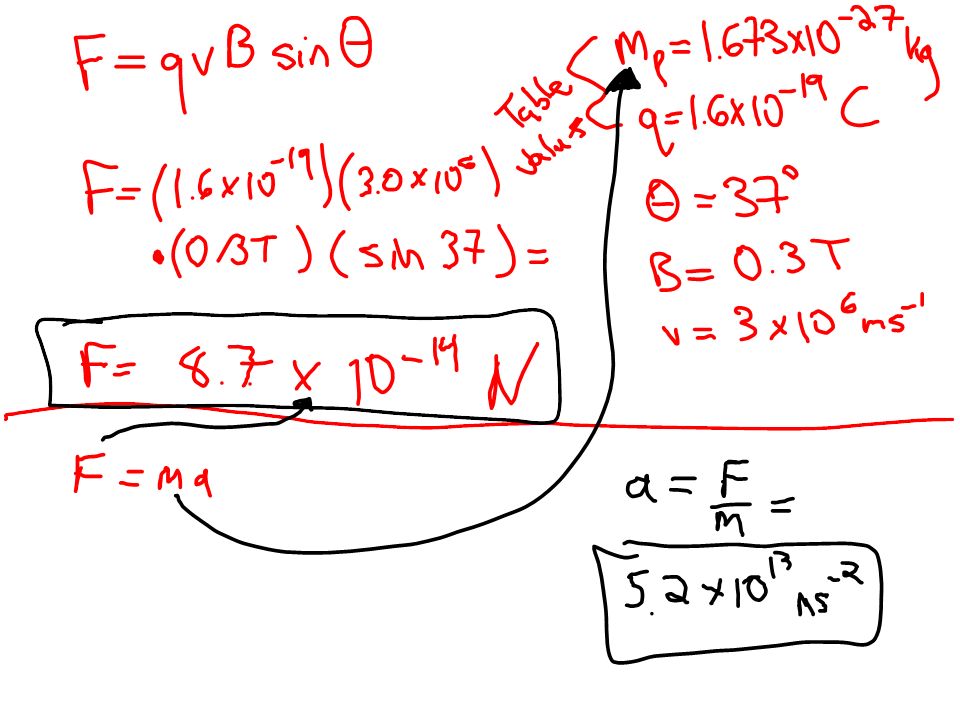 F = qvB sinθ
F = (1.6×10⁻¹⁹)(3.0×10⁶)
•(0.3T)(sin 37) =
F = 8.7 × 10⁻¹⁴ N
F = ma
Table values
Mp = 1.673×10⁻²⁷ kg
q = 1.6×10⁻¹⁹ C
θ = 37°
B = 0.3 T
v = 3×10⁶ ms⁻¹
a = F/m =
5.2×10¹³ ms⁻²